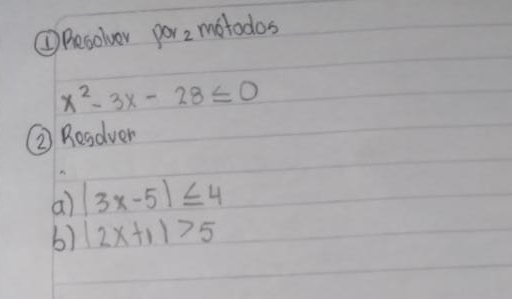 ① Resolver por 2 métodos
x² - 3x - 28 ≤ 0
② Resolver
a) |3x-5| ≤ 4
b) |2x+1| > 5